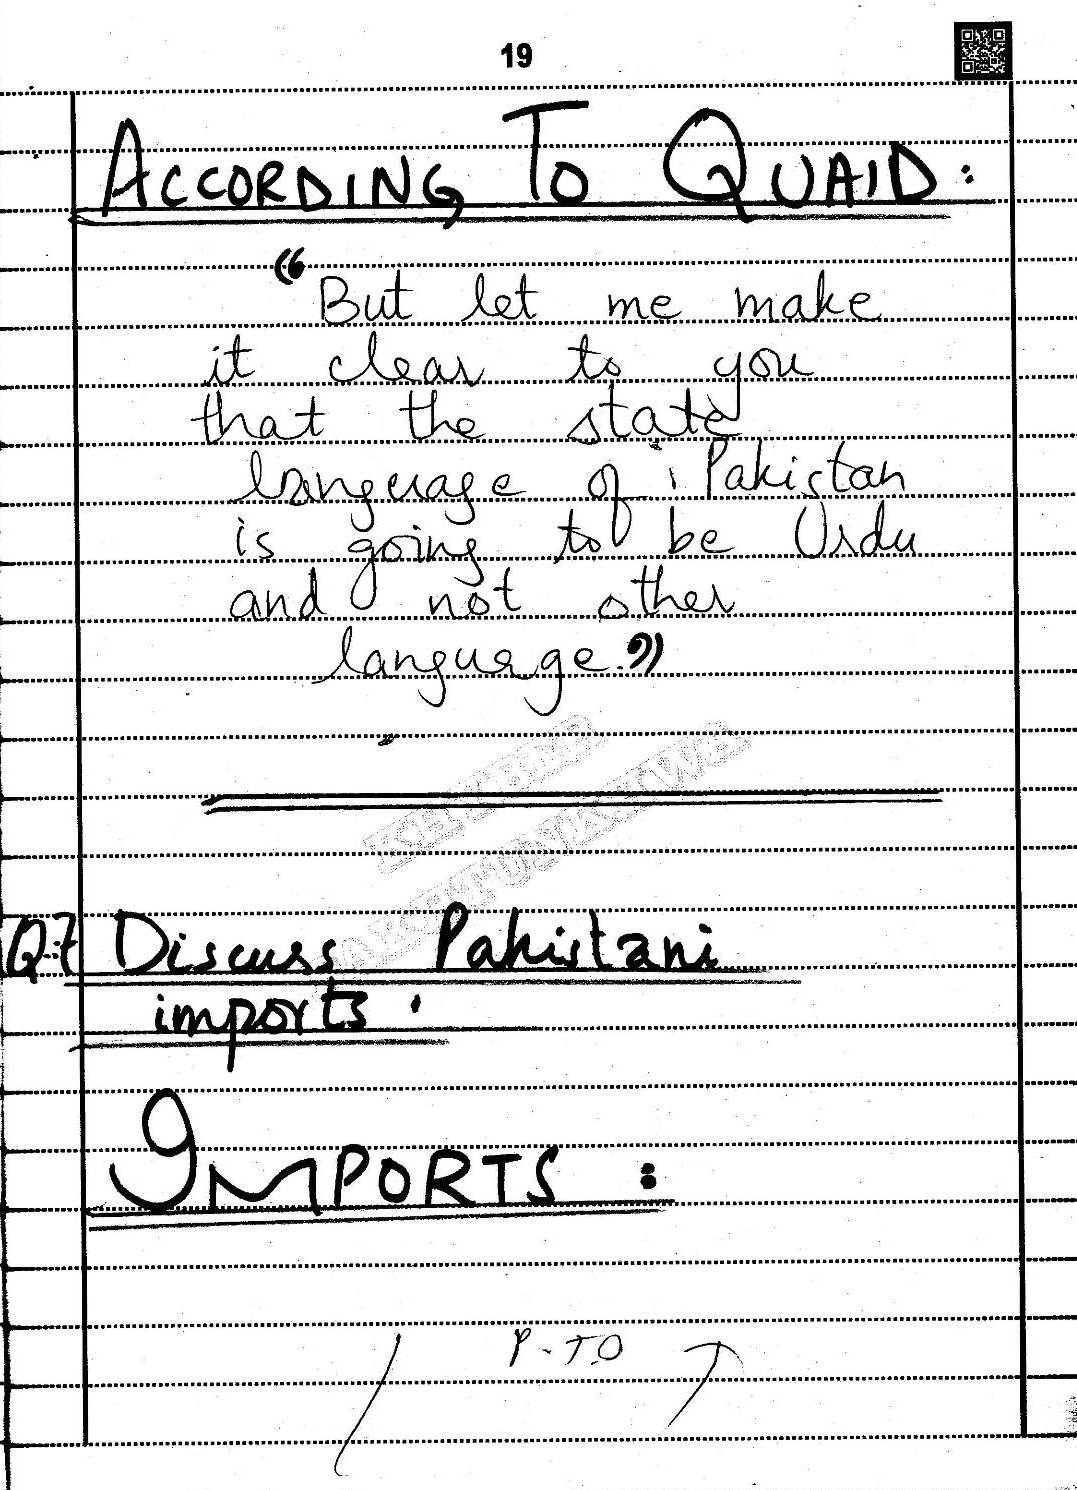 19
ACCORDING TO QUAID:
“But let me make
it clear to you
that the state
language of Pakistan
is going to be Urdu
and not other
language.”
KHYBER
PAKHTUNKHWA
Q:7 Discuss Pakistani
imports.
IMPORTS:
P.T.O